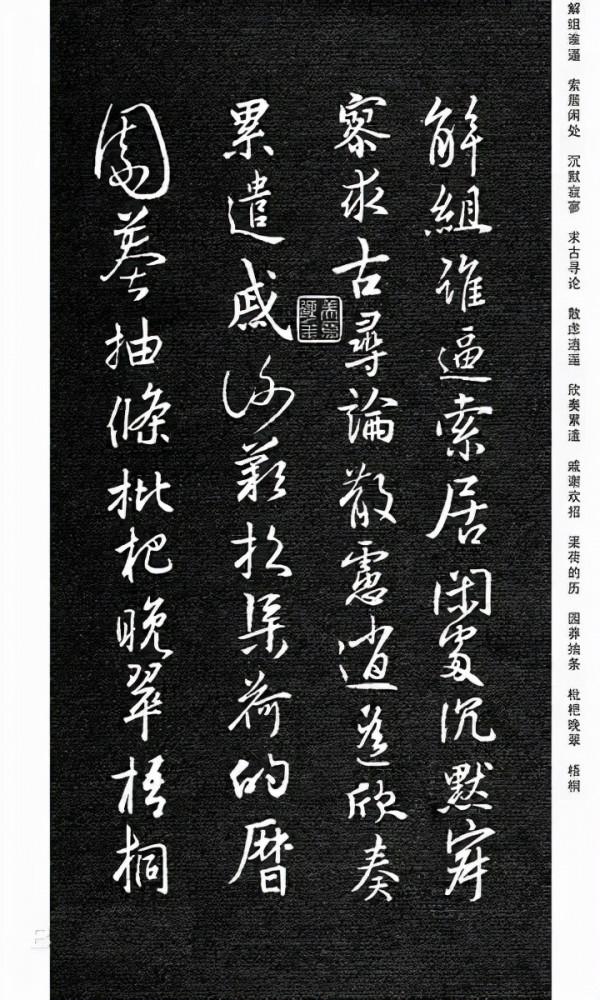 解组谁逼 索居闲处 沉默寂寥 求古寻论 散虑逍遥 欣奏累遣 戚谢欢招 渠荷的历 园莽抽条 枇杷晚翠 梧桐
解組誰逼索居閑處沉默寂
寥求古尋論散慮逍遙欣奏
累遣慼謝歡招渠荷的曆
園莽抽條枇杷晚翠梧桐